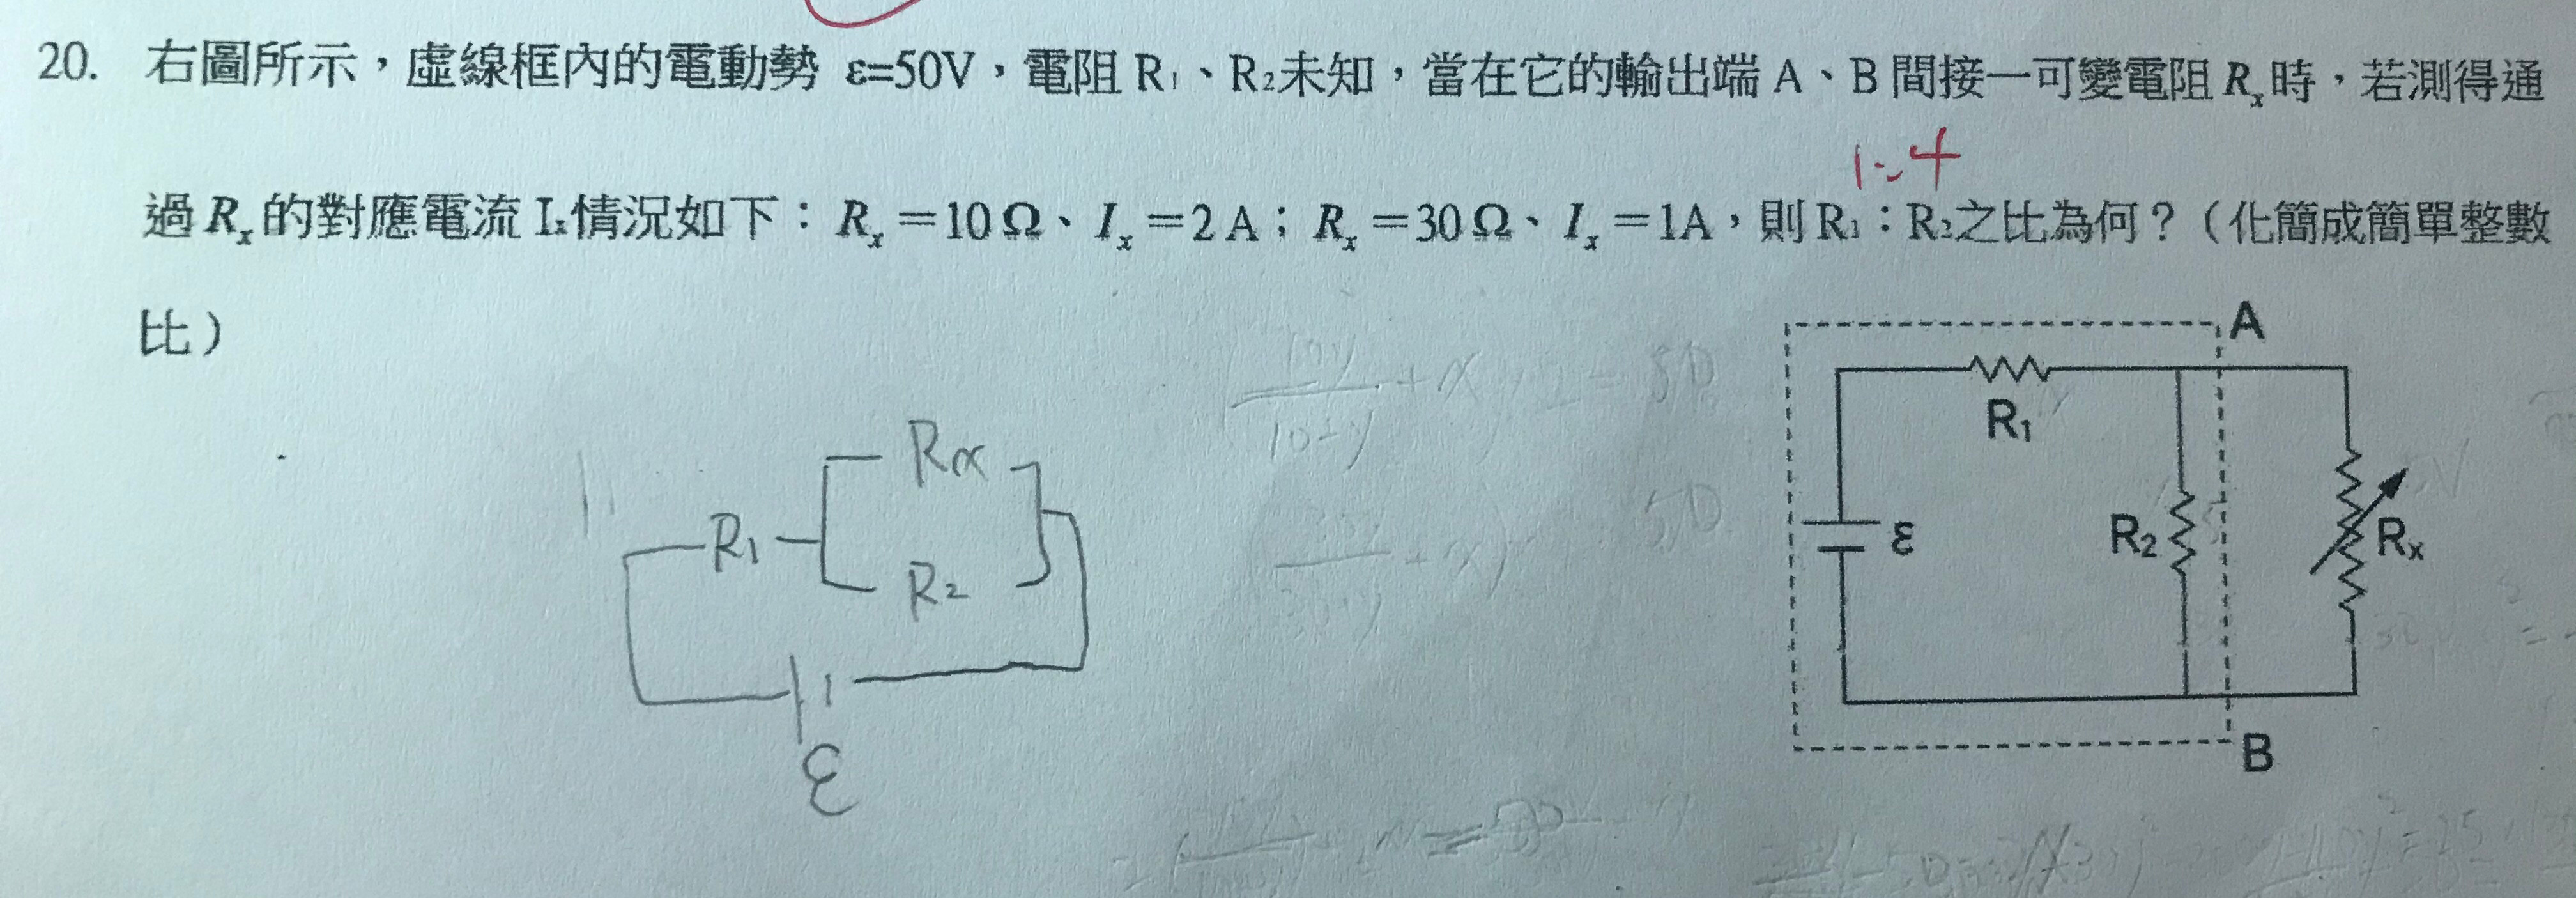 20. 右圖所示，虛線框內的電動勢 ε=50V，電阻 R₁、R₂未知，當在它的輸出端 A、B 間接一可變電阻 Rₓ時，若測得通
1:4
過 Rₓ的對應電流 Iₓ情況如下：Rₓ＝10Ω、Iₓ＝2A；Rₓ＝30Ω、Iₓ＝1A，則R₁：R₂之比為何？（化簡成簡單整數
比）
A
R₁
ε
R₂
Rₓ
B
Rx
R₁
R₂
ε